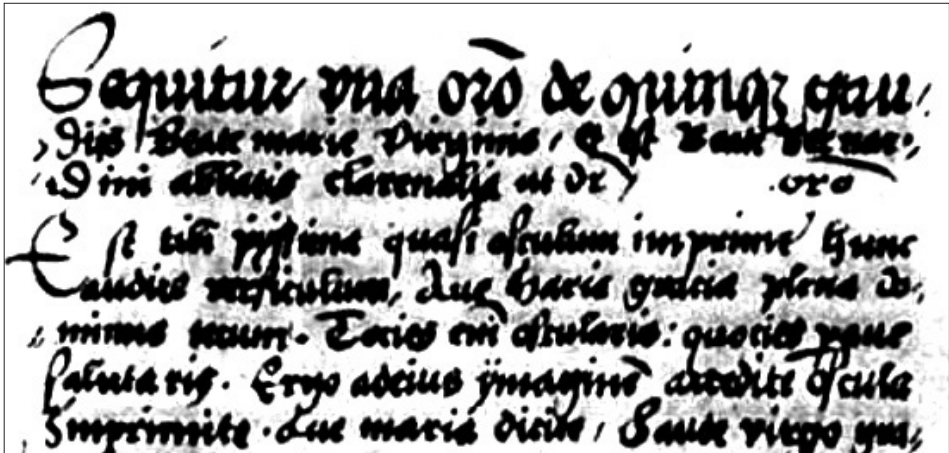 Sequitur una orō de quinqz gau,
,diis Beate marie Virginis, Et est Beati Bernar,
,di imi abbatis clareualis ut dr orō
Est tibi pyssima quasi osculum imprimē hunc
audire versiculum, Aue Maria gracia plena do,
,minus tecum. Tocies eni oscularis: quocies p aue
salutaris. Ergo ad eius ymaginē accedite oscula
Imprimite. Aue maria dicite, Gaude virgo gra,